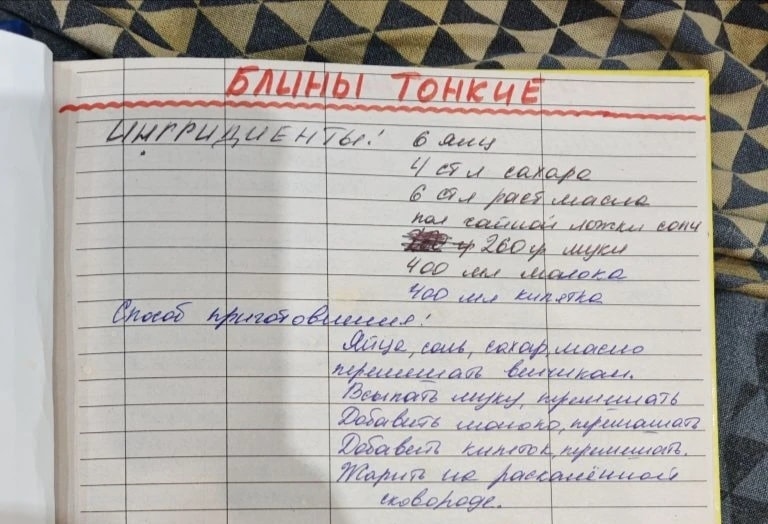 БЛИНЫ ТОНКИЕ
ИНГРИДИЕНТЫ! 6 яиц
4 ст л сахара
6 ст л раст масла
пол чайной ложки соли
260 гр муки
400 мл молока
400 мл кипятка
Способ приготовления!
Яйца, соль, сахар, масло
перемешать венчиком.
Всыпать муку, перемешать
Добавить молоко, перемешать
Добавить кипяток, перемешать.
Жарить на раскалённой
сковороде.